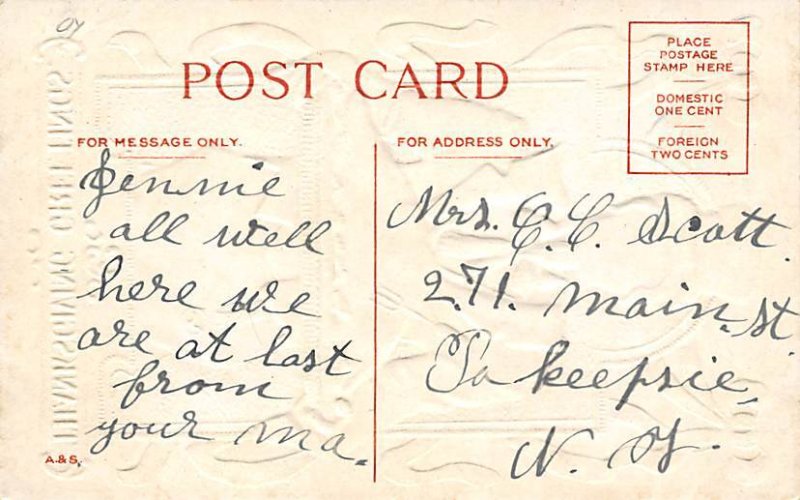 04
POST CARD
PLACE
POSTAGE
STAMP HERE
DOMESTIC
ONE CENT
FOREIGN
TWO CENTS
FOR MESSAGE ONLY.
Jennie
all well
here we
are at last
from
your ma.
A.&S.
FOR ADDRESS ONLY.
Mrs. C. C. Scott.
271. Main. St.
Po keepsie,
N. Y.
THANKSGIVING GREETINGS